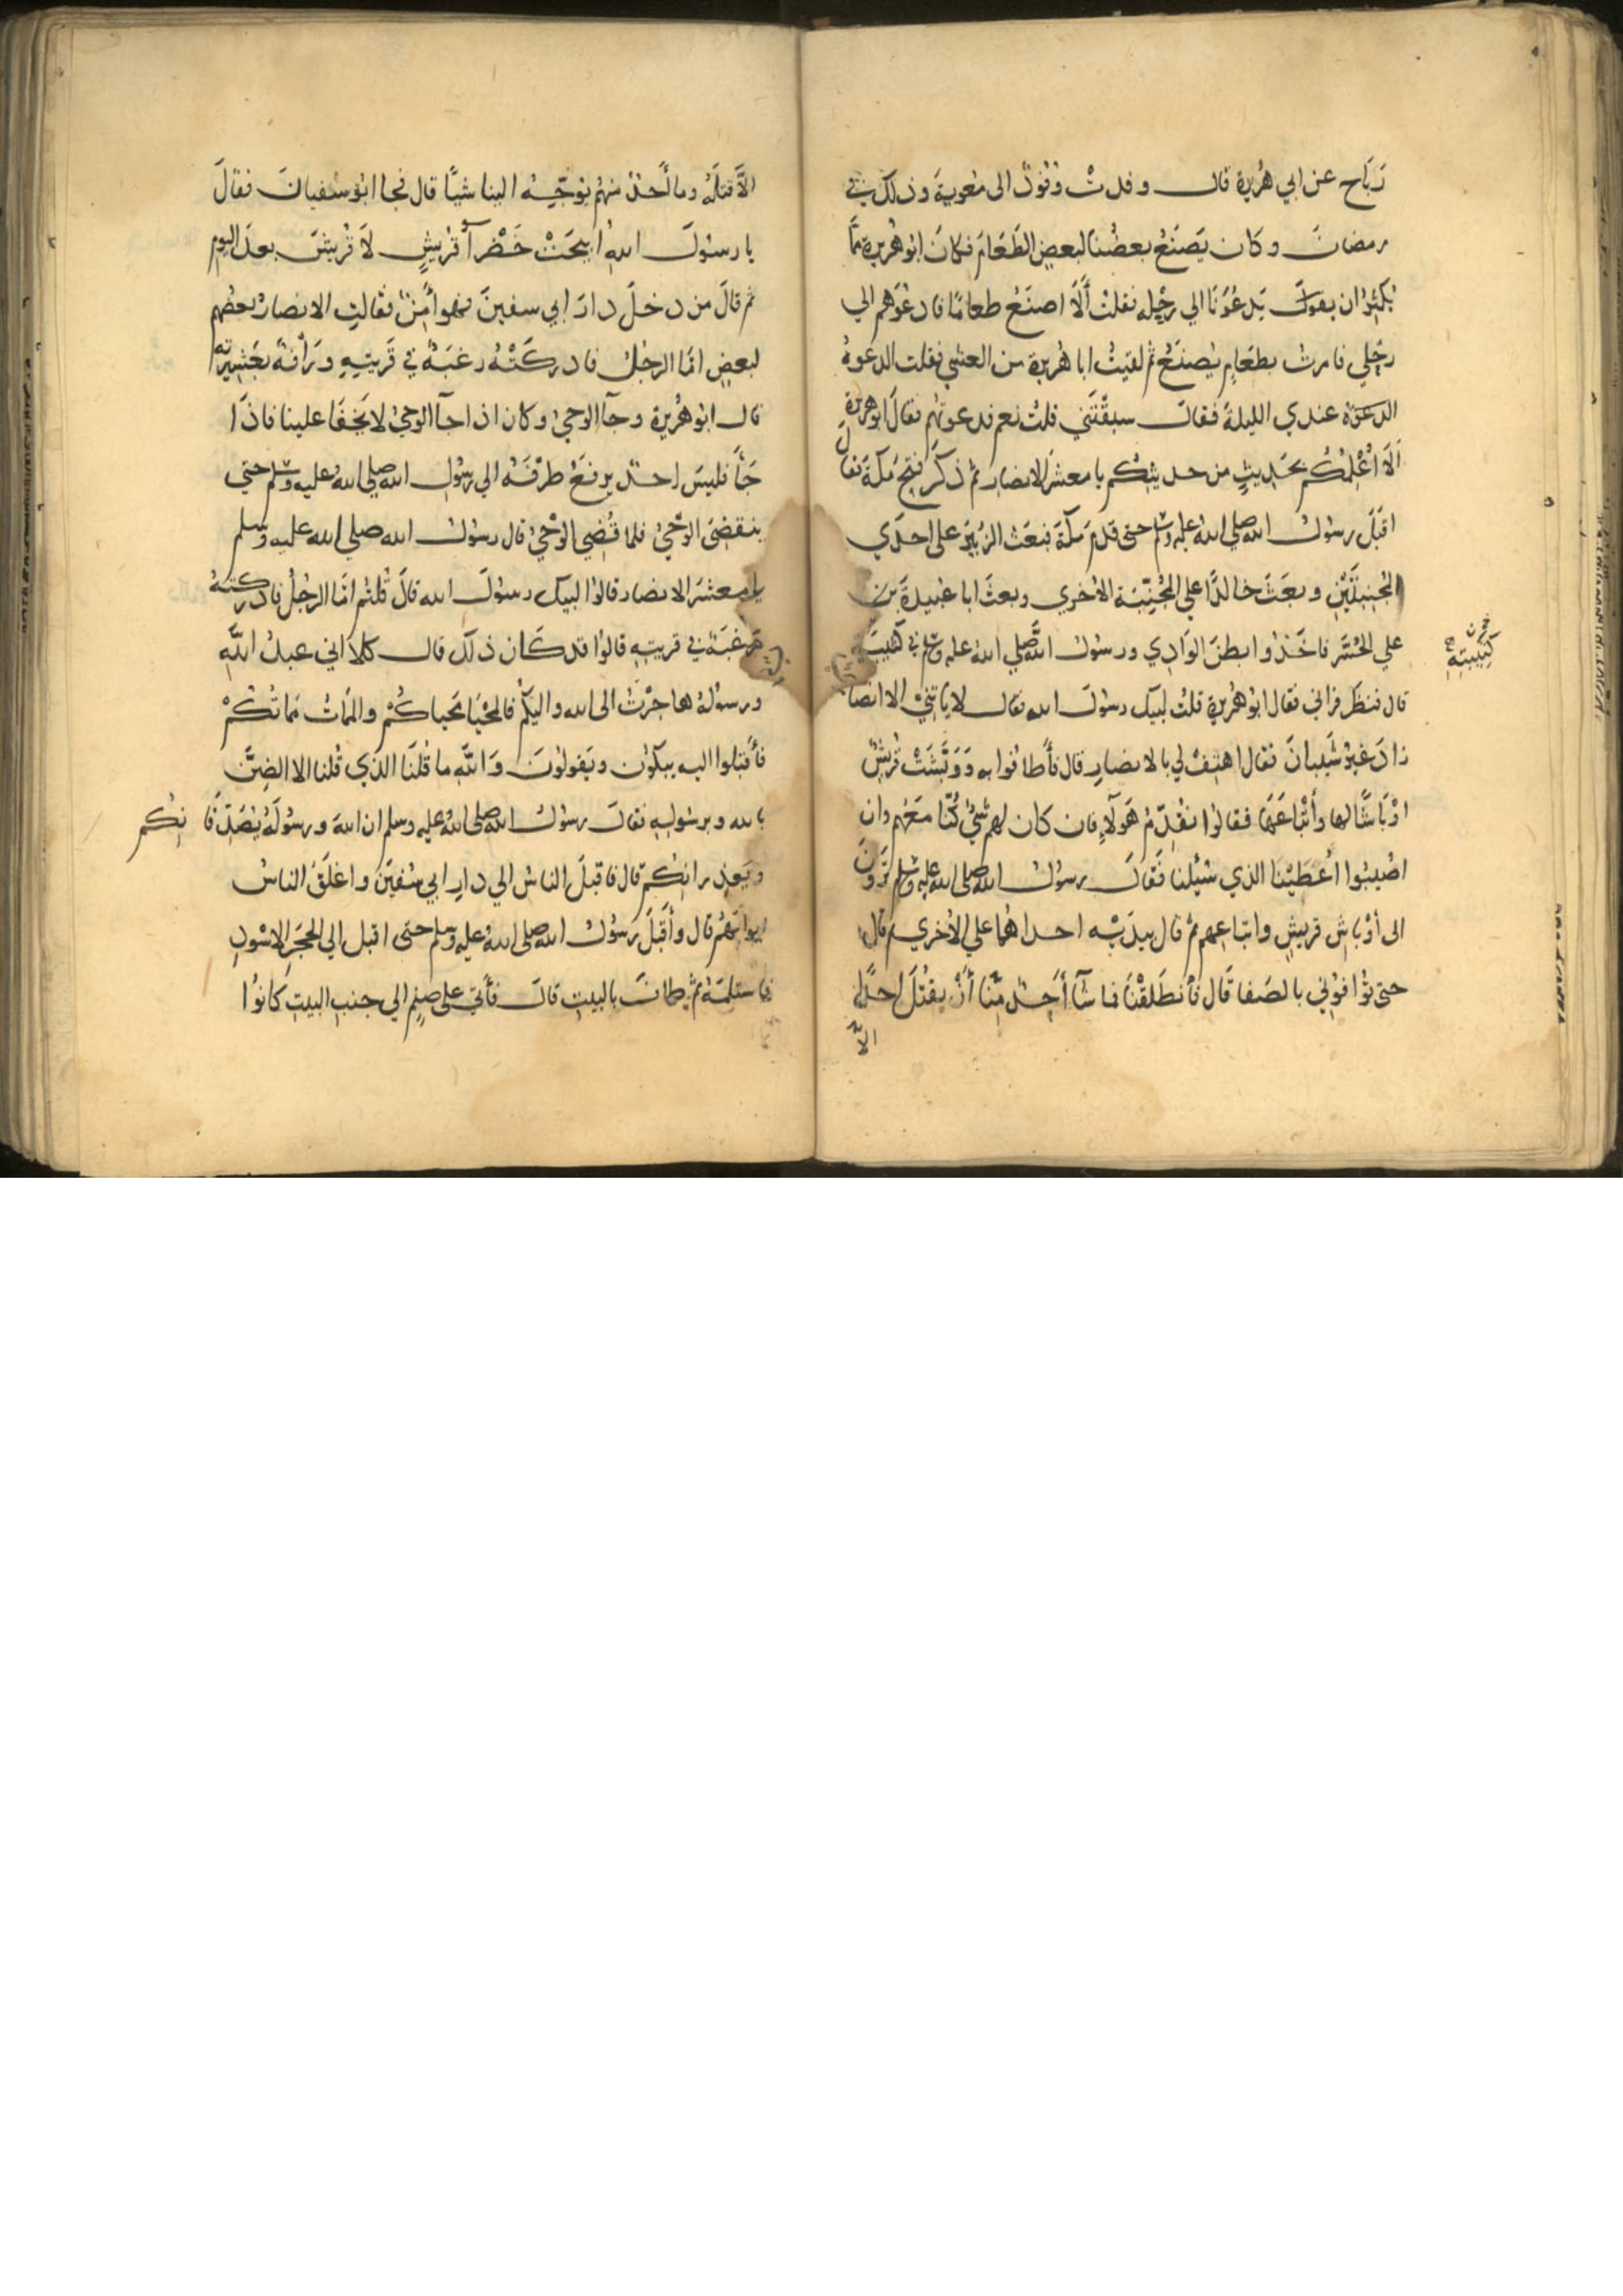 رَبَاح عن ابي هُرَيرة قال وفدتْ وُفُودٌ الى معوية وذلك في
رمضانَ وكان يَصْنَعُ بعضُنا لبعضٍ الطَعَامَ فكانَ ابو هُريرة مِمَّا
يُكثِرُ ان يدعُوَنَا الي رَحْلِه فقلتُ أَلَا اصنَعُ طعامًا فادعُوَهم الي
رحْلي فامرتُ بطعَامٍ يُصنَعُ ثم لقيتُ ابا هُريرة من العشي فقلت الدعوةُ
الدعوَة عندي الليلةَ فقالَ سبقْتَني قلتُ نعم فدعوتُهم فقالَ ابو هريرةَ
اَلَا أُعْلِمُكُم بحَدِيثٍ من حديثِكُم يا معشرَ الانصارِ ثم ذكَر فتحَ مكةَ فقال
اقبَلَ رسُولُ الله صلى اللهُ عليه وسلم حتى قدمَ مكّةَ فبَعَث الزُبَيرَ على احدَي
المُجَنِّبَتَيْنِ وبعَثَ خالدًا على المُجَنِّبَة الاُخرى وبعثَ ابا عُبيدةَ بن
علي الحُسَّرِ فاخَذُوا بطنَ الوَادِي ورسُولُ الله صلي اللهُ عليه وسلم في كتيبةٍ
كَتِيبَتِهِ
قال فنظَر فراني فقال ابو هُرَيرة قلتُ لبيك رسُولَ الله فقال لا يَاتِيْنِي الا انصا
زادَ غيرُ شَيبانَ فقال اهتِفْ لي بالانصارِ قال فأَطافُوا به وَوَبَّشَتْ قُرَيشٌ
اوْبَاشًا لها وأَتْبَاعَهَا فقالوا نُقَدِّمُ هَوُلَآءِ فان كان لهم شَيْءٌ كُنَّا معَهُم وان
اصُيبُوا أعْطَيْنا الذي سُئِلْنا فَقالَ رسُولُ الله صلى الله عليه وسلم تَرَوْنَ
الى أوْبَاشِ قريشٍ واتباعِهم ثم قال بيدَيْه احداهُما علي الاُخرى ثم قال
حتى تُوافوُني بالصَفا قَال فأنطَلَقْنَا فما شَآ أحَدٌ مِنَّا أَنْ يقتُلَ احدًا
الَّا
الاَّ قتلَهُ وما أحَدٌ منهُم يُوَجِّه الينا شيًا قال فجا ابُو سُفيانَ فقالَ
يا رسُولَ اللهِ ابيحَتْ خَضْرآ قُرَيشٍ لَا قُريشَ بعدَ اليوم
ثم قالَ من دخلَ دارَ ابي سفينَ فهو امِنٌ فقالتِ الانصارُ بعضُهم
لبعضٍ امّا الرجُلُ فادركَتْهُ رغبَةٌ في قَريتِهِ ورَأفةٌ بعَشِيرتِه
قال ابو هُرَيرة وجآ الوحيُ وكان اذا جآ الوحيُ لا يَخفَا علينا فاذَا
جَأَ فليسَ احدٌ يرفَعُ طرْفَهُ الي رسُولِ الله صلي اللهُ عليه وسلم حتي
ينقضِىَ الوَحْيُ فلما قُضِي الوَحْيُ قال رسُولُ الله صلي الله عليه وسلم
يا معشَرَ الانصار قالوُا لبيك رسوُلَ الله قالَ قُلتُم امَّا الرجُلُ فادركتهُ
رغبَةٌ في قريتِهِ قالوُا قد كَان ذلك قال كلّا اني عبدُ اللهِ
ورسوُلُهُ هاجَرْتُ الى الله واليكُم فالمحْيَا محياكُم والمَمَاتُ مَمَاتُكُمْ
فأَقبَلوا اليه يبكُون ويَقولوُنَ وَاللهِ ما قُلنَا الذي قُلنا الا الضِنَّ
بالله وبرسُولِهِ فقالَ رسُولُ الله صلى اللهُ عليه وسلم ان اللهَ ورسُولَهُ يُصَدِّقَانِكُم
ويَعذِرانِكُم قال فاقبَلَ الناسُ الي دارِ ابي سُفينَ واغلَقَ الناسُ
ابوابَهُم قال وأَقبَلَ رَسُولُ الله صلى اللهُ عليه وسلم حتى اقبل الي الحجَرِ الاسْودِ
فاستلمَهُ ثم طافَ بالبيتِ قالَ فأَتى على صنمٍ الي جنبِ البيتِ كانوُا